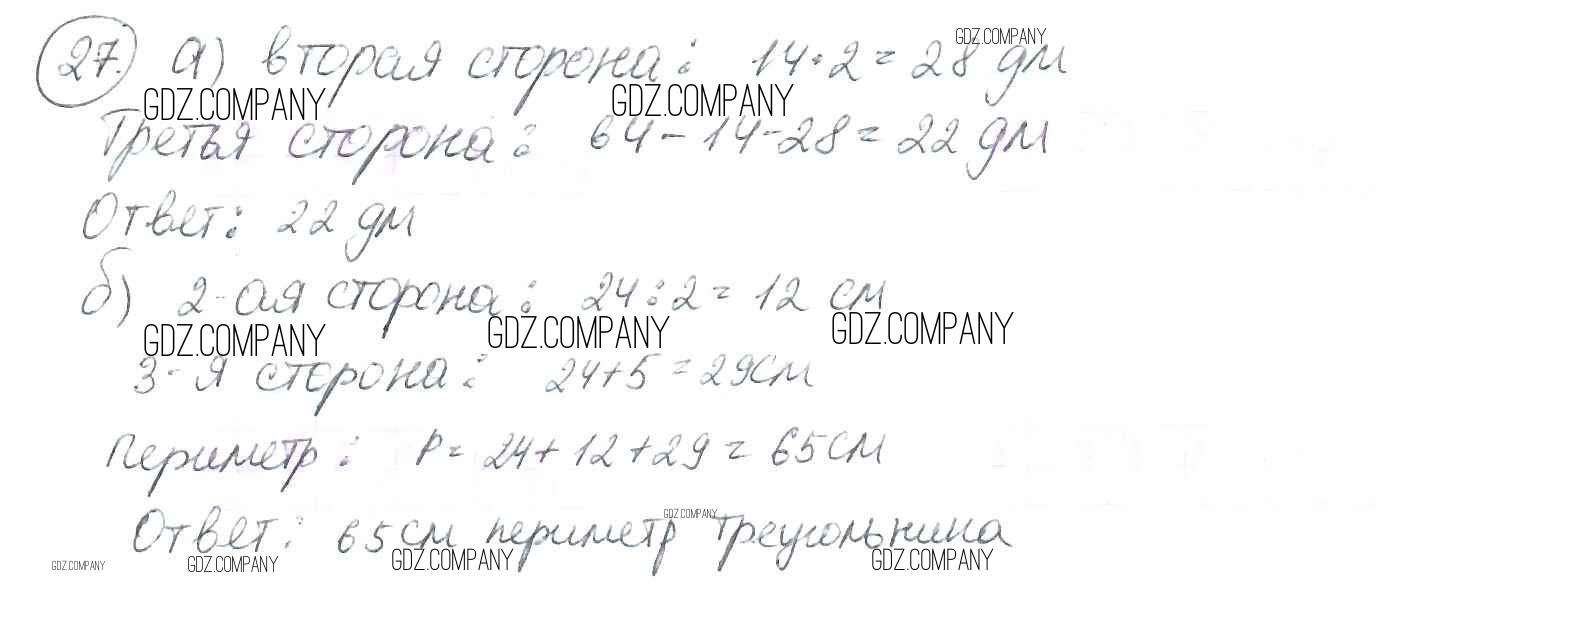 27. а) вторая сторона: 14·2=28 дм
GDZ.COMPANY
GDZ.COMPANY GDZ.COMPANY
Третья сторона: 64-14-28=22 дм
Ответ: 22 дм
б) 2-ая сторона: 24:2=12 см
GDZ.COMPANY GDZ.COMPANY GDZ.COMPANY
3-я сторона: 24+5=29см
Периметр: P=24+12+29=65см
GDZ.COMPANY
Ответ: 65см периметр треугольника
GDZ.COMPANY GDZ.COMPANY GDZ.COMPANY GDZ.COMPANY